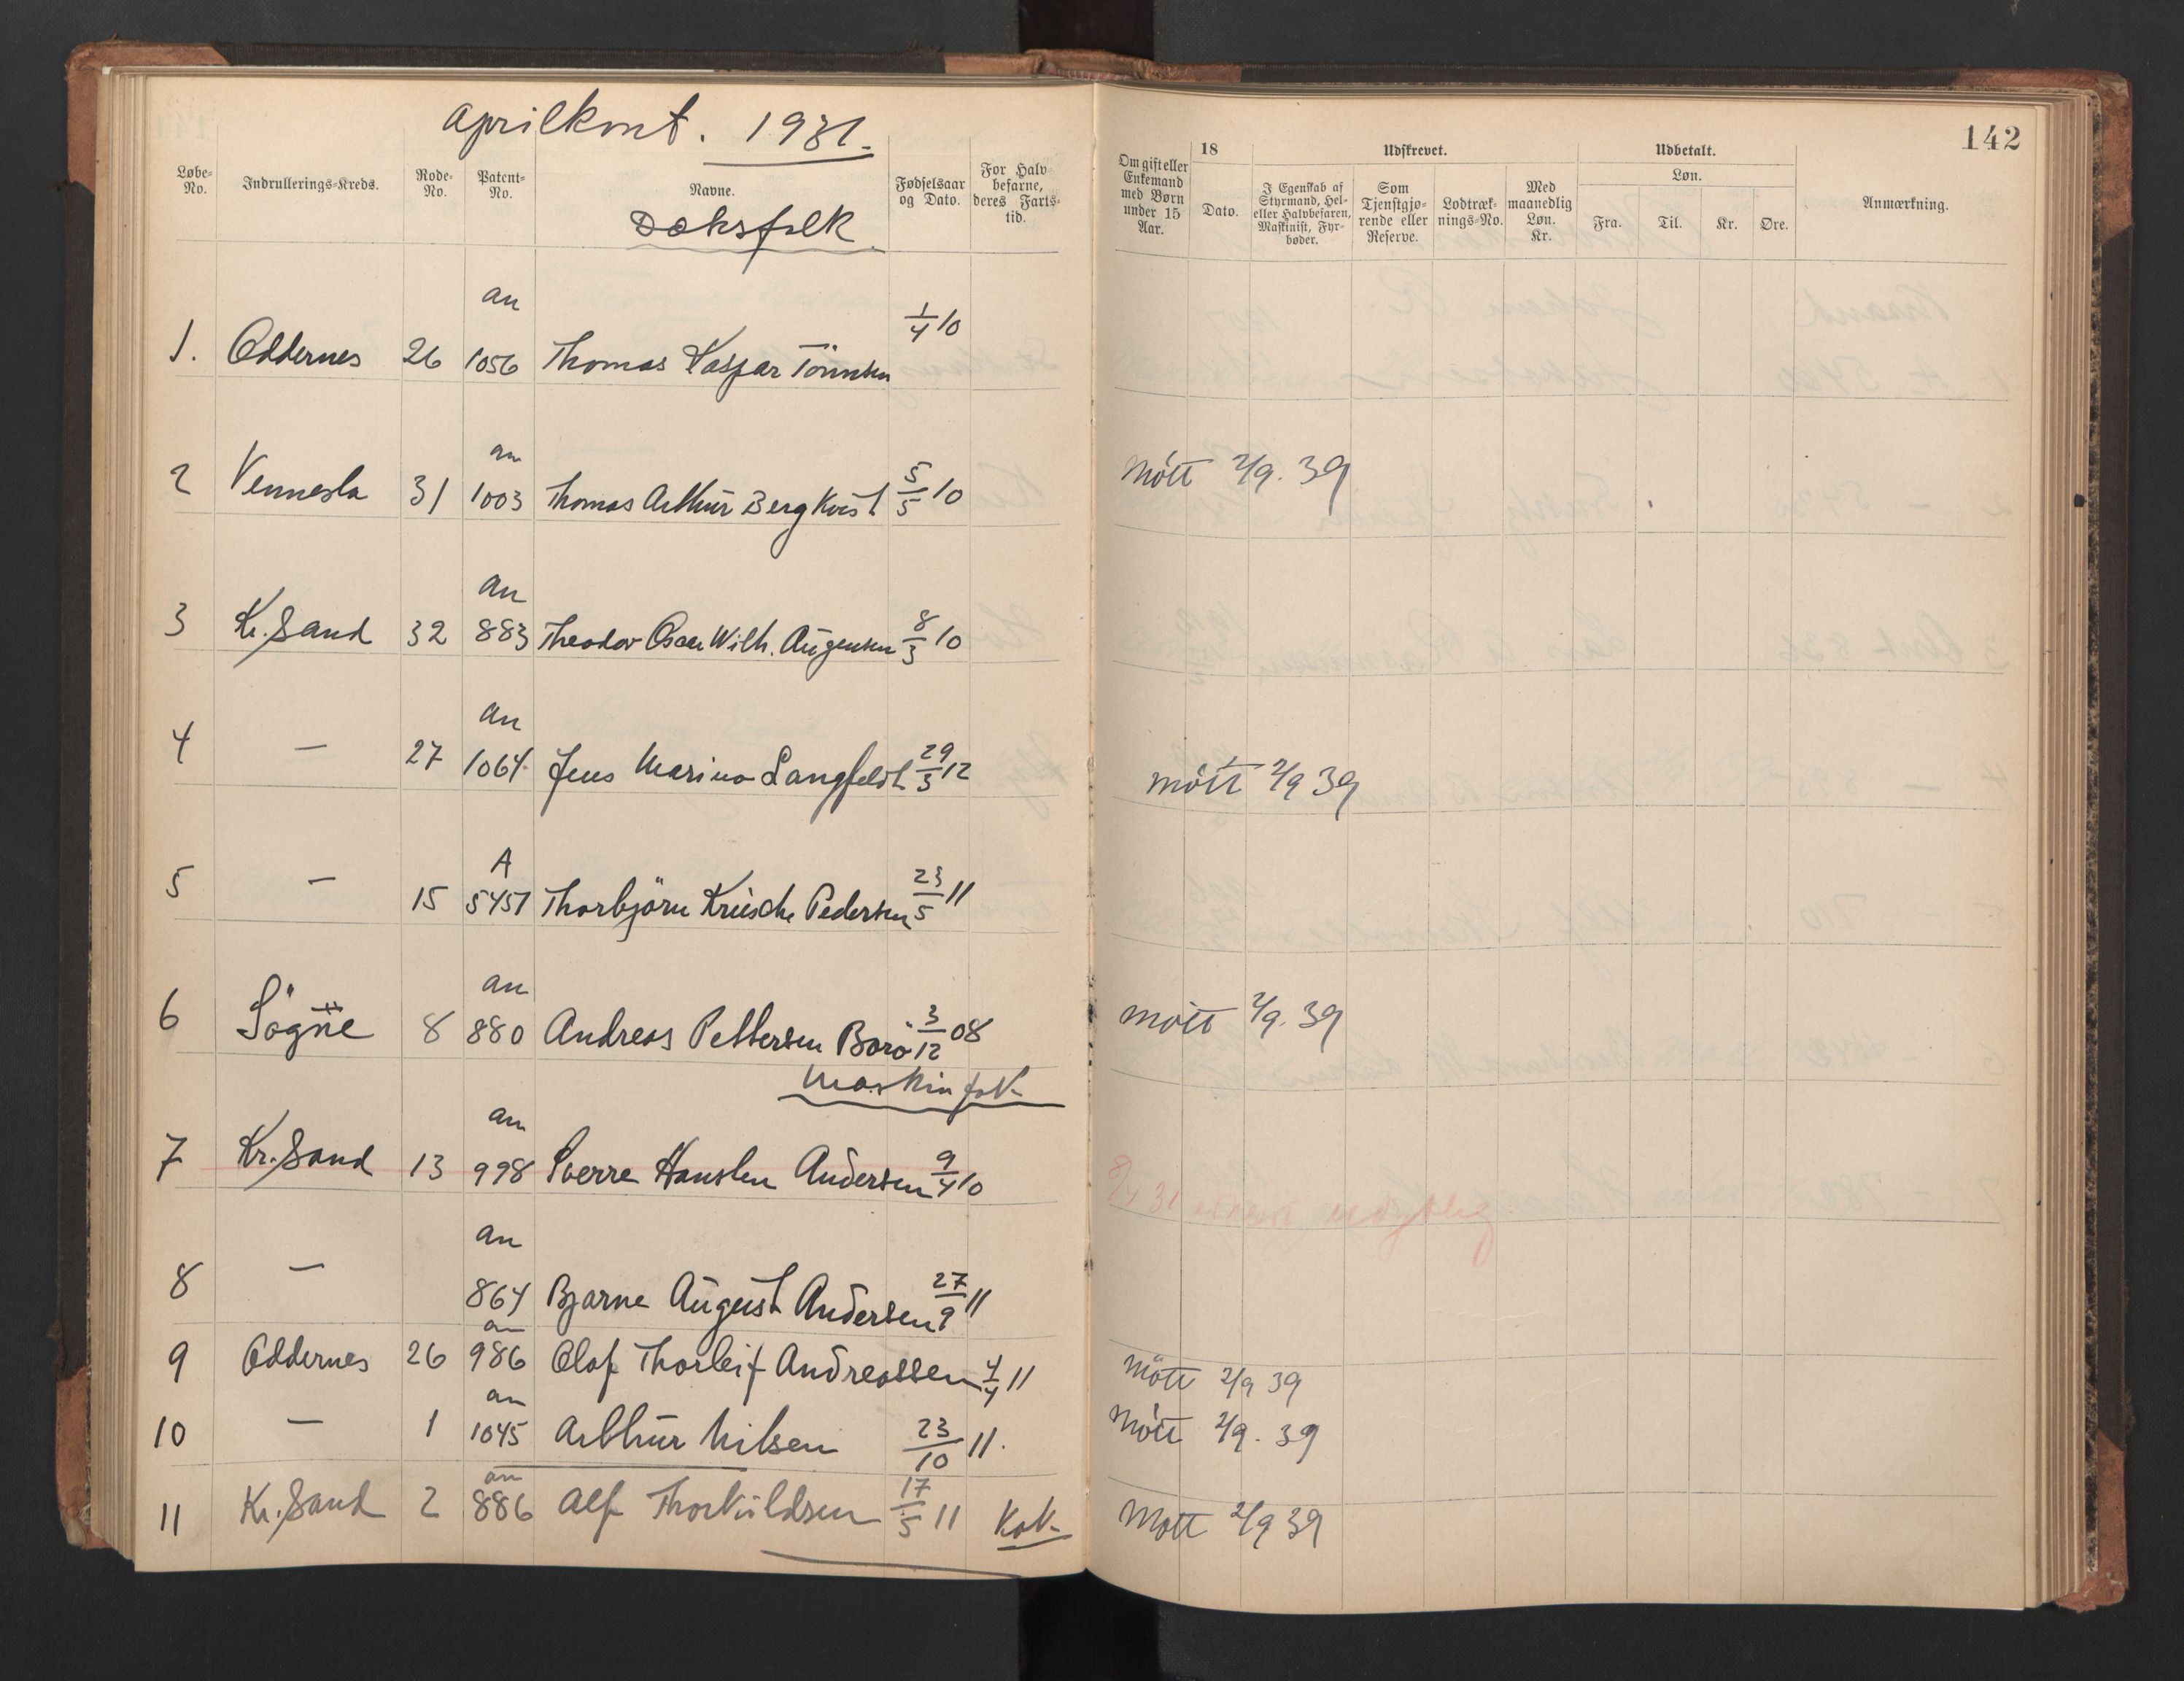 aprilkont. 1931.
142
Løbe-No. Indrullerings-Kreds. Rode-No. Patent-No. Navne. Fødselsaar og Dato. For Halvbefarne, deres Farts-tid.
Om gift eller Enkemand med Børn under 15 Aar. 18 Dato. Udskrevet. I Egenskab af Styrmand, Hel- eller Halvbefaren, Maskinist, Fyrbøder. Som Tjenstgjørende eller Reserve. Lodtræknings-No. Med maanedlig Løn. Kr. Udbetalt. Løn. Fra. Til. Kr. Øre. Anmærkning.
Dæksfolk.
an
1. Oddernes 26 1056 Thomas Kaspar Tönnsen 1/4 10
an
2 Vennesla 31 1003 Thomas Arthur Bergkvist 5/5 10 Mött 2/9. 39
an
3 Kr. Sand 32 883 Theodor Oscar Wilh. Augensen 8/3 10
an
4 — 27 1064 Jens Marino Langfeldt 29/3 12 mött 2/9 39
A
5 — 15 5457 Thorbjörn Krüsche Pedersen 23/5 11
an
6 Sögne 8 880 Andreas Pettersen Borö 3/12 08 mött 2/9. 39
Maskinfolk
an
7 Kr. Sand 13 998 Sverre Hansten Andersen 9/4 10 8/4 31 udygtig
an
8 — 864 Bjarne August Andersen 27/9 11
an
9 Oddernes 26 986 Olaf Thorleif Andreassen 4/4 11 Mött 2/9 39
an
10 — 1 1045 Arthur Nilsen 23/10 11. Mött 2/9. 39
an
11 Kr. Sand 2 886 Alf Thorkildsen 17/5 11 Kok Mött 2/9 39